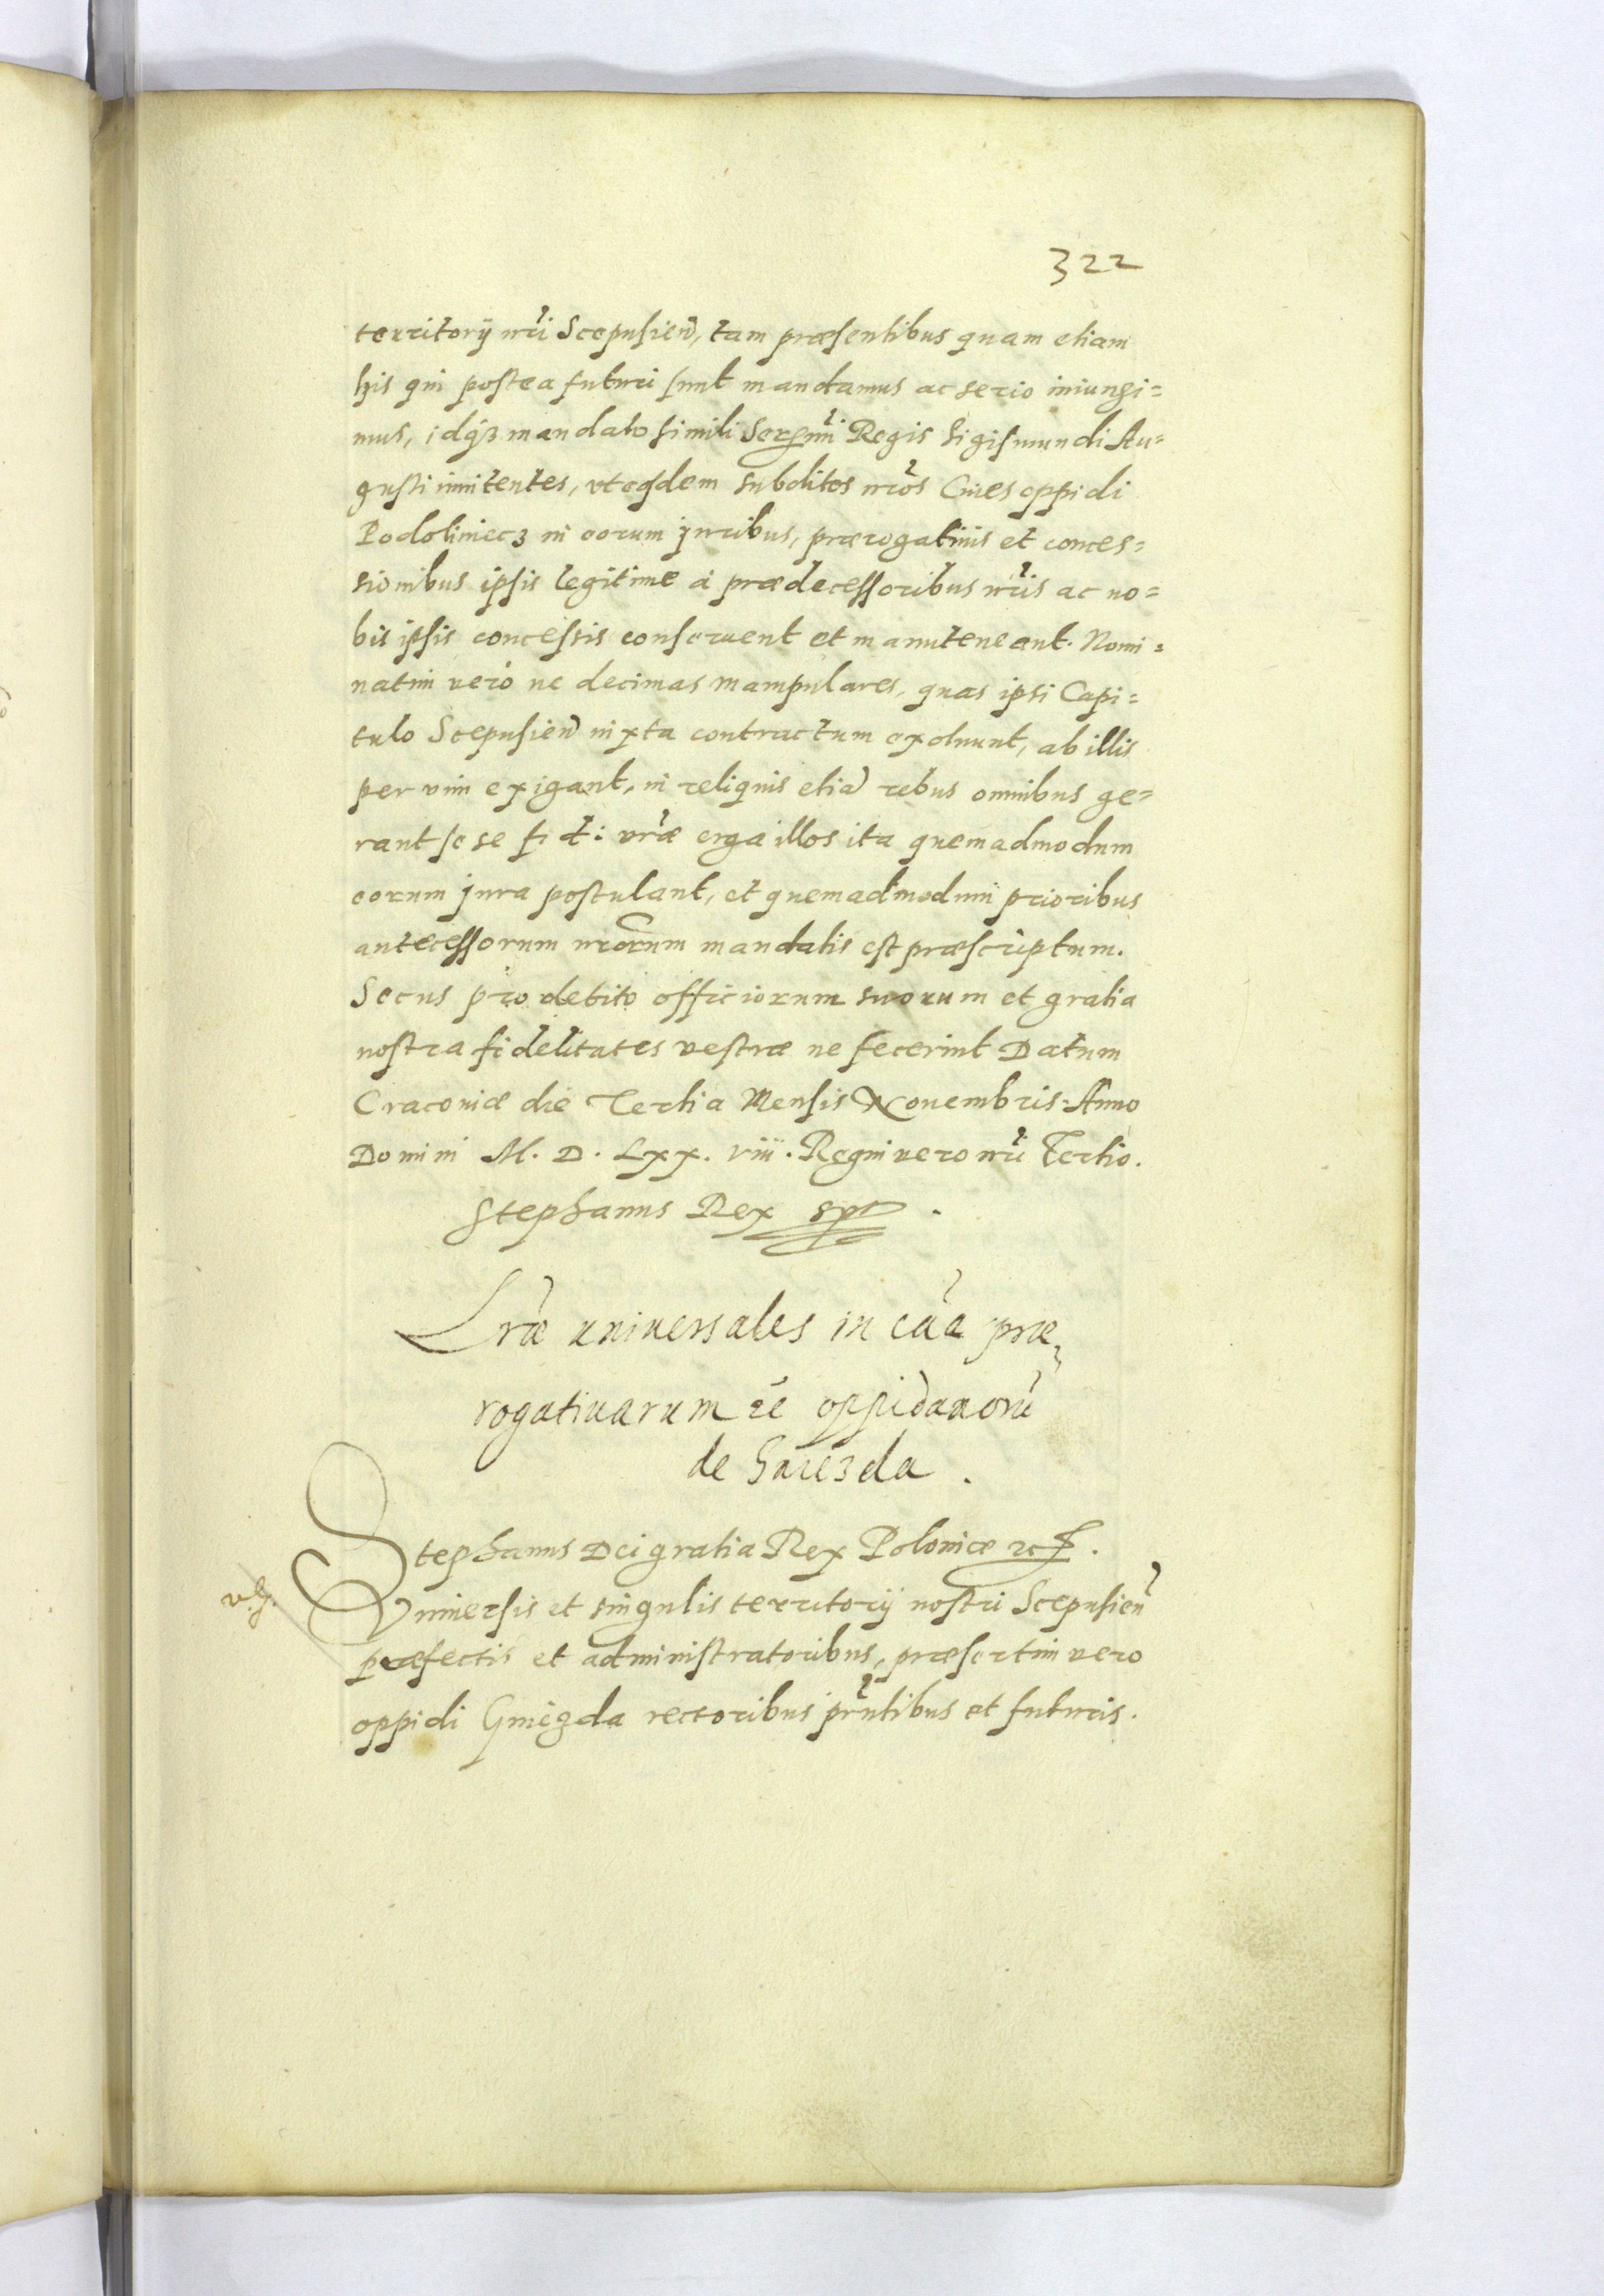 322
territorij nr̃i Scepusień, tam præsentibus quam etiam
his qui postea futuri sunt mandamus ac serio iniungi=
mus, idq́ȝ mandato simili Serẽnmi Regis Sigismundi Au=
gusti innitentes, vt eosdem subditos nr̃os Ciues oppidi
Podoliniecz in eorum juribus, prærogatiuis et conces=
sionibus ipsis legitime á prædecessoribus nr̃is ac no=
bis ipsis concessis conseruent et manuteneant. Nomi=
natim veró ne decimas manipulares, quas ipsi Capi=
tulo Scepusień iuxta contractum exoluunt, ab illis
per vim exigant, in reliquis etiã rebus omnibus ge=
rant se se fid: vr̃æ erga illos ita quemadmodum
eorum jura postulant, et quemadmodum prioribus
antecessorum nr̃orum mandatis est præscriptum.
Secus pro debito officiorum suorum et gratia
nostra fidelitates vestræ ne fecerint Datum
Cracouiæ die Tertia Mensis Nouembris Anno
Domini M. D. Lxx. viii. Regni vero nr̃i Tertio.
Stephanus Rex spt.
Lr̃æ vniuersales in cãa præ=
rogatiuarum re oppidanorũ
de Gniezda.
Stephanus Dei gratia Rex Poloniæ etc.
Vniuersis et singulis territorij nostri Scepusień
præfectis et administratoribus, præsertim vero
oppidi Gniezda rectoribus pr̃ntibus et futuris.